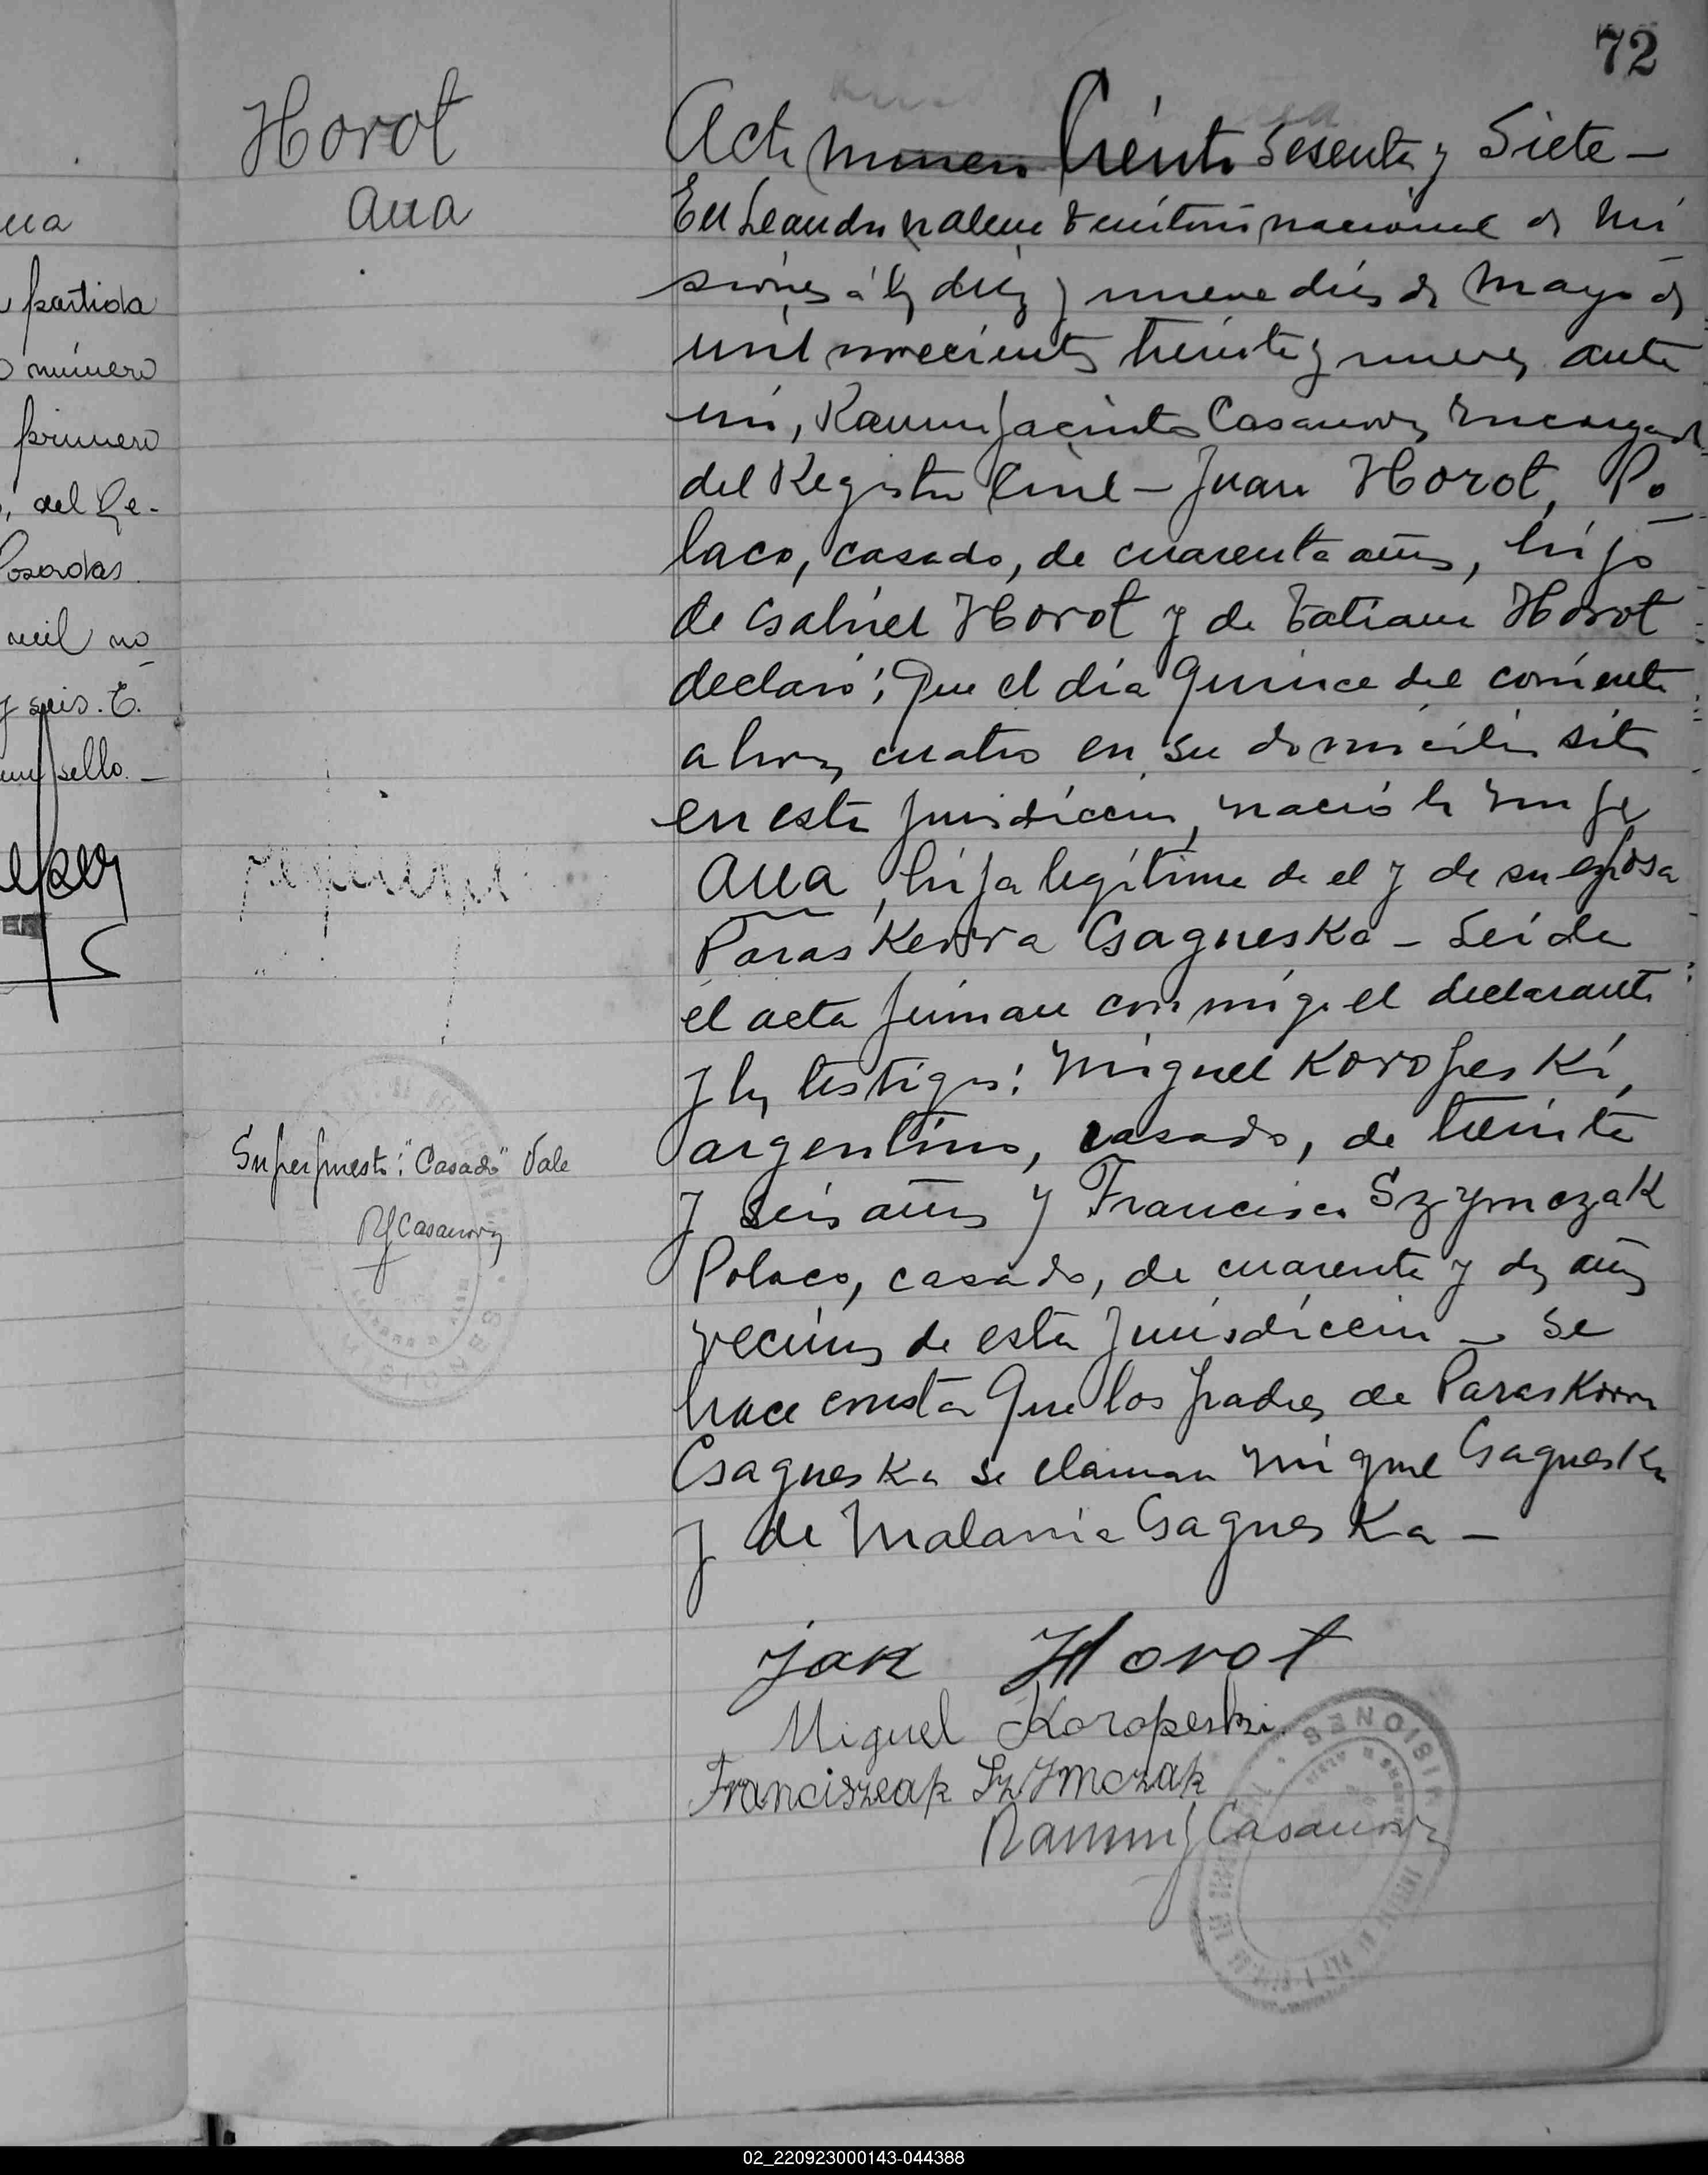 72
Horot
Ana
Acta numero Ciento Sesenta y Siete -
En Leandro N alem territorio nacional de Mi
siones á los diez y nueve dias de Mayo de
mil novecientos treinta y nueve, ante
mi, Ramon Jacinto Casanova Encargado
del Registro Civil - Juan Horot, Po
laco, casado, de cuarenta años, hijo
de Gabriel Horot y de Tatiana Horot
declaró; Que el día quince del corriente
a horas cuatro en su domicilio sito
en esta jurisdiccion, nació la
Ana, hija legítima de el y de su esposa
Paraskewra Csagneska - Leida
el acta firman conmigo el declarante
y los testigos: Miguel Koropeski,
argentino, casado, de treinta
y seis años y Francisco Szymczak
Polaco, casado, de cuarenta y dos años
vecinos de esta jurisdiccion - Se
hace constar Que los padres de Paraskowra
Csagneska se llaman Miguel Csagneska
y de Malania Csagneska -
Jan Horot
Miguel Koropeski.
Franciszeak Szymczak
Ramon J Casanova
Superpuesto: "Casado" Vale
RJCasanova
MISIONES
MISIONES
na
partida
o número
primero
, del Re-
Posadas
mil no
y seis. E.
un sello. -
02_220923000143-044388